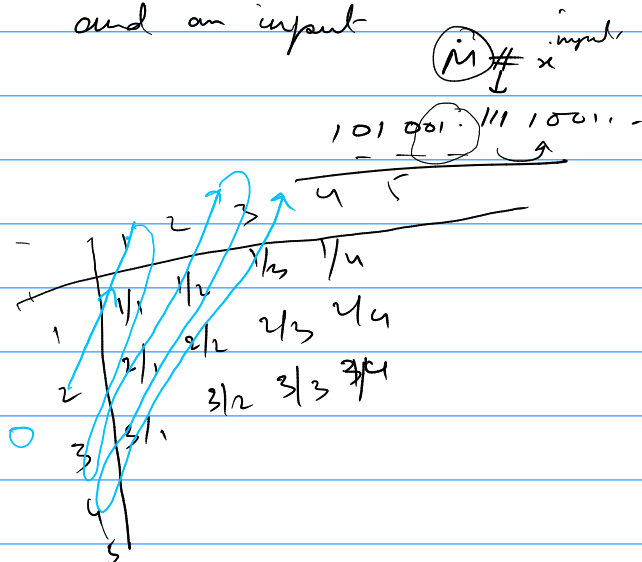 and an input
M # x input
101 001 111 1001..
1 2 3 4 5
1/1 1/2 1/3 1/4
1 2/1 2/2 2/3 2/4
2 3/1 3/2 3/3 3/4
3
4
5